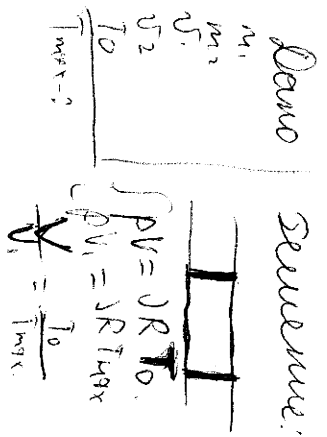 Дано
m₁
m₂
υ₁
υ₂
T₀
Tmax - ?
Решение:
pV = νRT₀
pV₁ = νRTmax
V/V₁ = T₀/Tmax